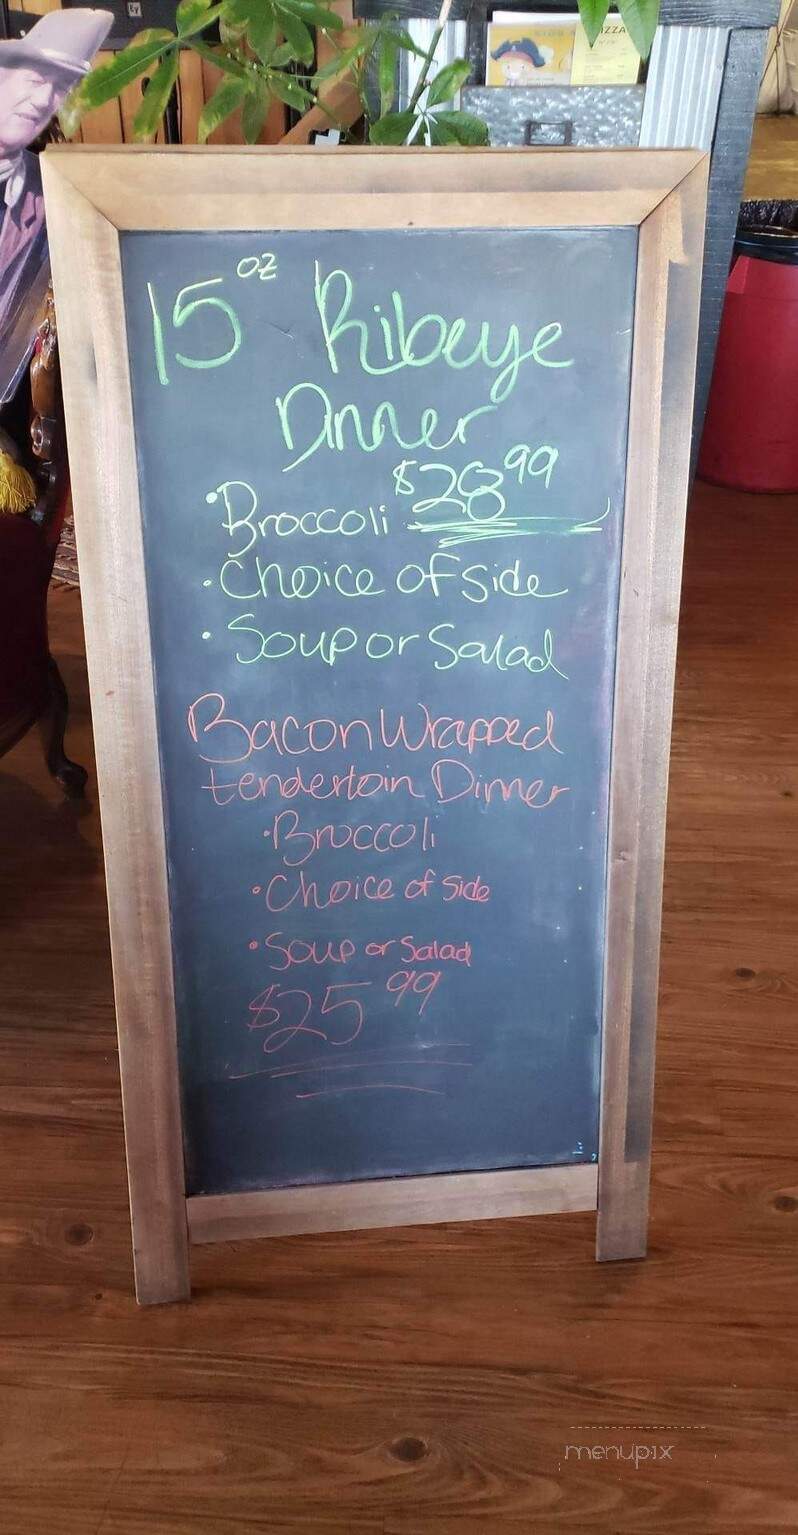 PIZZA
15 oz Ribeye
Dinner
• Broccoli $28.99
• Choice of side
• Soup or Salad
Bacon Wrapped
tenderloin Dinner
• Broccoli
• Choice of side
• Soup or Salad
$25.99
menupix